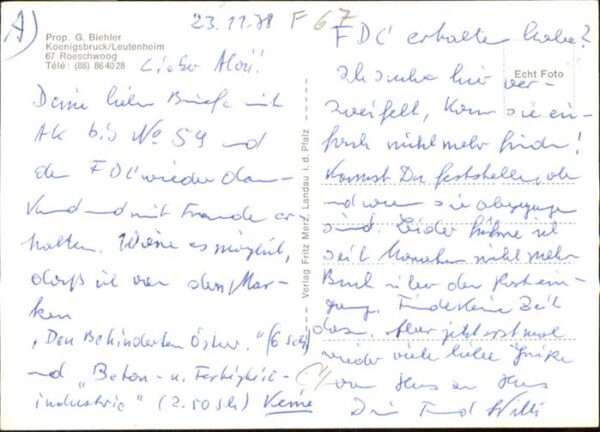 A)
23.11.78 F 67
Prop. G. Biehler
Koenigsbruck/Leutenheim
67 Roeschwoog
Télé: (88) 86 40 28
Lieber Aloi!
Deine lieben Briefe mit
AK bis No 59 und
den FDC wieder dan-
kend und mit Freude er
halten. Wäre es möglich,
daß ich von den Mar-
ken
"Den Behinderten Österr." (6 Sch)
und "Beton- u. Fertigteil-
industrie" (2.50 Sch) keine
Verlag Fritz Merz, Landau i. d. Pfalz
Echt Foto
FDC erhalten habe?
Ich suche hier ver-
zweifelt, kann sie ein-
fach nicht mehr finden!
Kannst Du feststellen, ob
und wann sie abgegangen
sind. Leider führe ich
seit Monaten nicht mehr
Buch über den Postein-
gang. Finde keine Zeit
dazu. Aber jetzt erst mal
wieder viele liebe Grüße
von Haus zu Haus
Dein Freund Willi